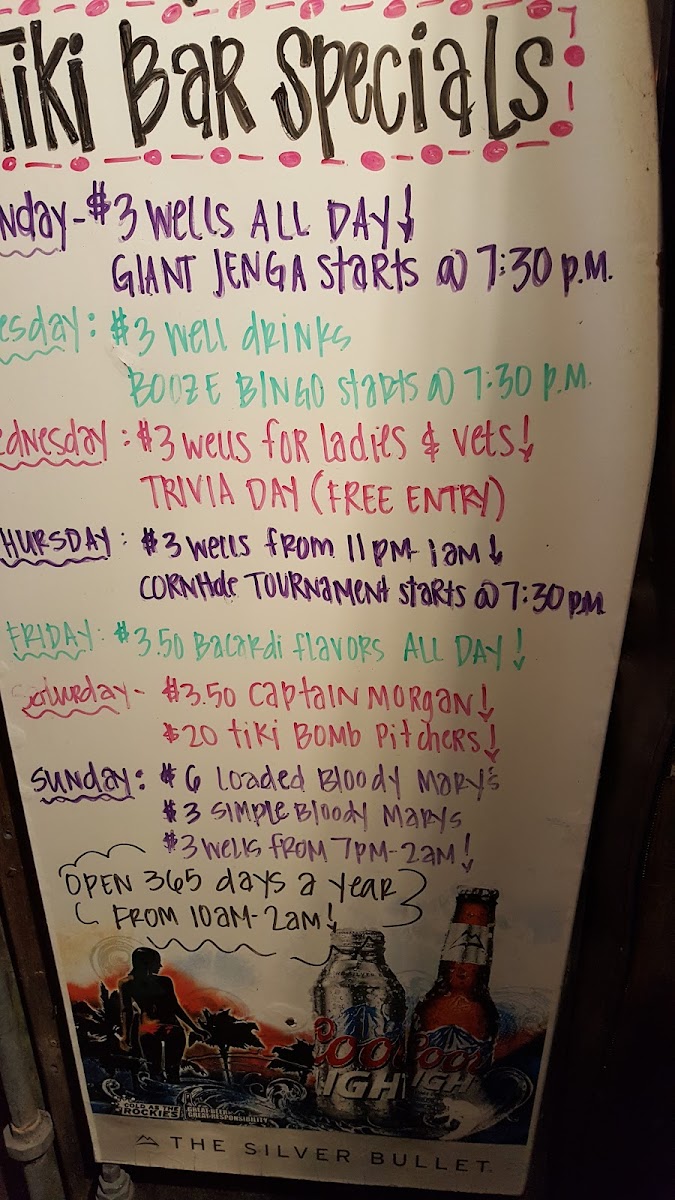 Tiki Bar Specials
nday - $3 wells ALL DAY!
GIANT JENGA starts @ 7:30 p.m.
esday: $3 well drinks
BOOZE BINGO starts @ 7:30 P.M.
ednesday: $3 wells for ladies & vets!
TRIVIA DAY (FREE ENTRY)
HURSDAY: $3 wells from 11pm-1am!
CORNHole TOURNAMENT starts @ 7:30 pm
FRIDAY: $3.50 Bacardi flavors ALL DAY!
Saturday - $3.50 Captain Morgan!
$20 tiki BOMB Pitchers!
SUNDAY: $6 Loaded Bloody Mary's
$3 Simple Bloody Marys
$3 wells from 7PM-2AM!
OPEN 365 days a year
FROM 10AM-2AM!
Coo Coors
IGH IGH
COLD AS THE ROCKIES
GREAT BEER GREAT RESPONSIBILITY
THE SILVER BULLET.